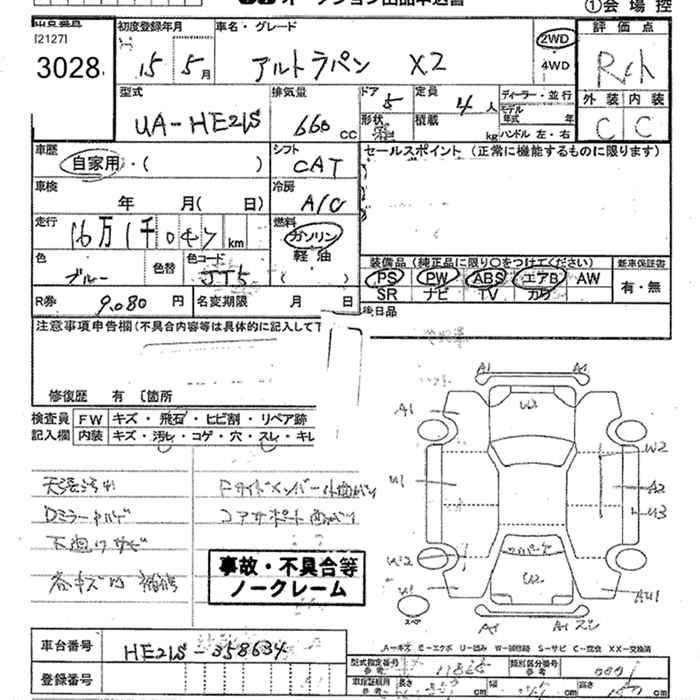 オークション出品申込書
①会場控
[2127]
3028
初度登録年月
15 5月
車名・グレード
アルトラパン X2
2WD
4WD
評価点
外装 内装
C C
型式
UA-HE21S
排気量
660 CC
ドア 5
形状
定員 4人
積載 kg
ディーラー・並行
モデル年式 年
ハンドル 左・右
車歴
自家用・( )
シフト
CAT
セールスポイント (正常に機能するものに限ります)
車検
年 月( 日)
冷房
A/C
走行
16万1千047 km
燃料
ガソリン
軽・油
( )
色
ブルー
色替
色コード
装備品 (純正品に限り○をつけてください)
PS PW ABS エアB AW
SR ナビ TV カワ
新車保証書
有・無
R券
9,080 円
名変期限 月 日
後日品
注意事項申告欄(不具合内容等は具体的に記入して下
修復歴 有 〔箇所
検査員記入欄
FW キズ・飛石・ヒビ割・リペア跡
内装 キズ・汚レ・コゲ・穴・スレ・キレ
天張汚れ
コアサポート曲がり
事故・不具合等
ノークレーム
A1 A1
A1
U2
W2
U1
A2
U3
W2
U2
AU1
スペア
A1
車台番号
HE21S-358634
登録番号
A-キズ E-エクボ U-凹み W-補修跡 S-サビ C-腐食 XX-交換済
型式指定番号
類別区分番号
長さ cm
幅 cm
高さ cm